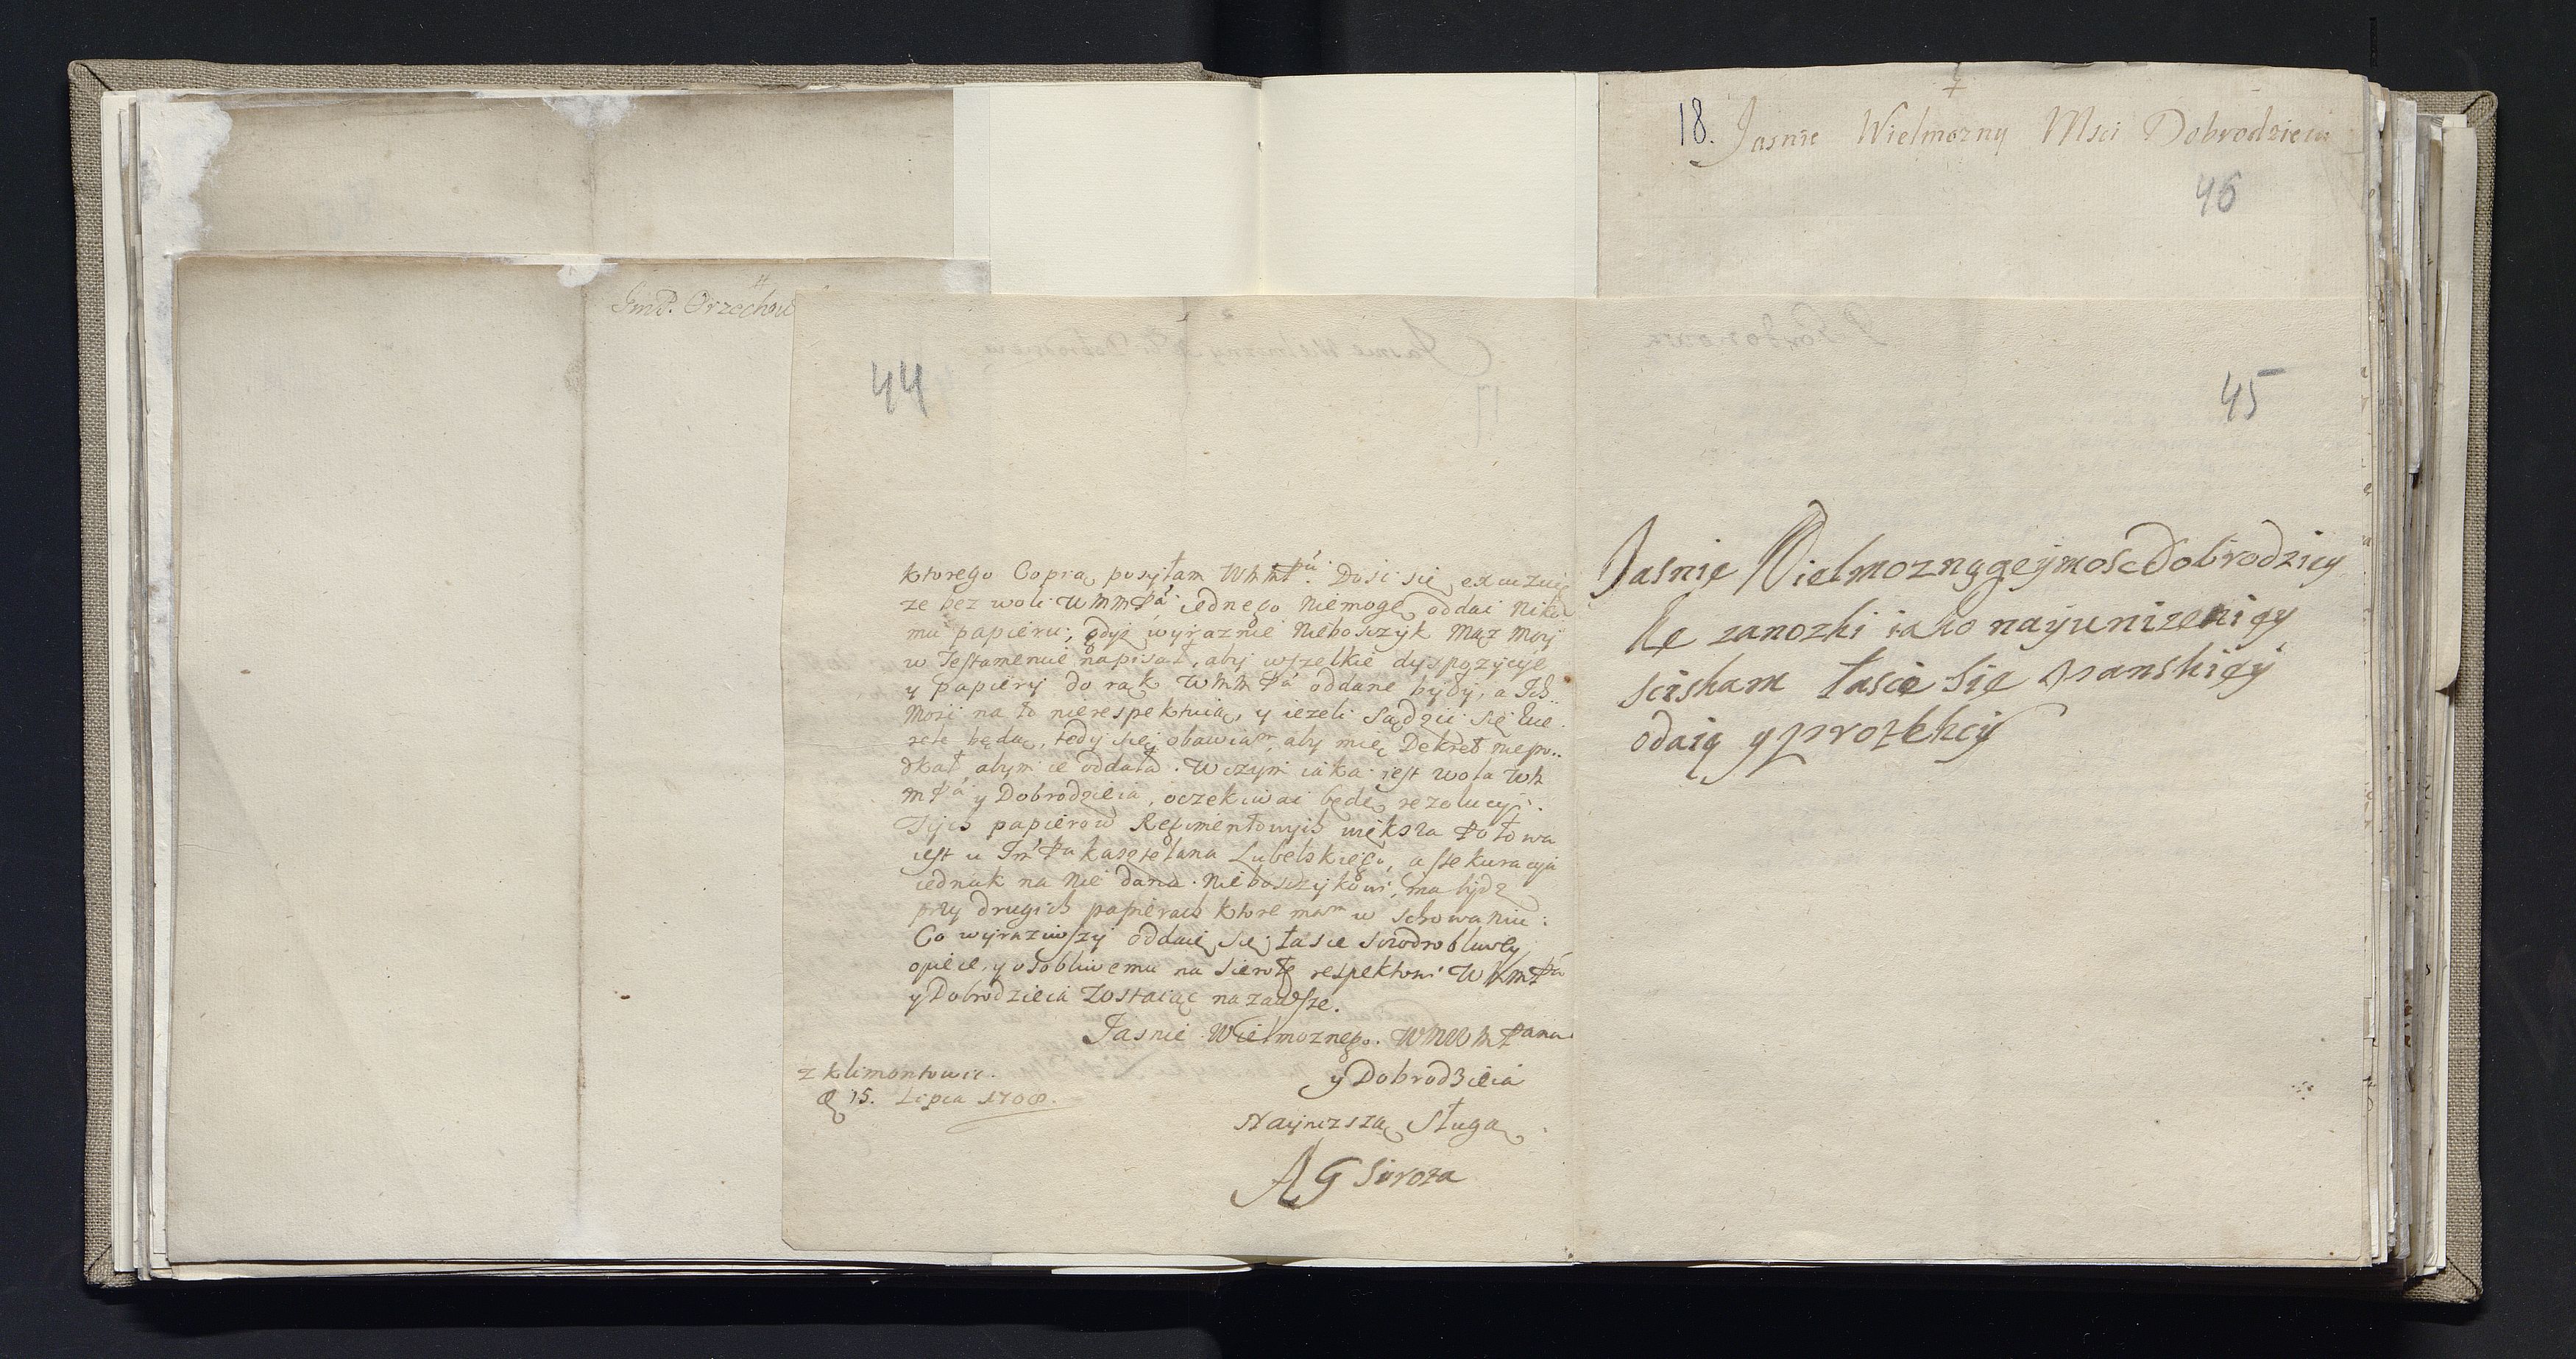 18. Jasnie Wielmozny Msci Dobrodzieiu
46
JmP. Orzechow
44
ktorego Copią posyłam WMMPu. Dosi się excuzuię
ze bez woli WMMPa iednego niemogę oddai niko
mu papieru, gdyz wyraznie Nieboszczyk Mąz moy
w Testamencie napisał, aby wszelkie dyspozycyie
y papiery do rąk WMMPa oddane były, a Ich
Mosi na to nierespektuią, y iezeli sądzii się
będą, tedy się obawiam, aby mię Dekret niepo..
tkał, abym ie oddała. W czym iaka jest wola WM
MPa y Dobrodzieia, oczekiwai będę rezolucyi.
Tych papierow Regimentowych większa połowa
iest u JmPa Kasztelana Lubelskiego, assekuracyia
iednak na nie dana Nieboszczykowi, ma bydz
przy drugich papierach ktore mam w schowaniu:
Co wyraziwszy oddaię się łasce szczodrobliwey
opiece, y osobliwemu na sierotę respektowi WMMPa
y Dobrodzieia zostaiąc na zawsze.
Jasnie Wielmoznego WMWMPana
y Dobrodzieia
Nayniższą Sługą
AG Siroza
z Klimontowic.
D 15. Lipca 1708.
45
Jasnie Wielmozną geymosc Dobrodziey
kę zanozki iako nayunizeniey
sciskam łasce się Panskiey
odaię y protekcy